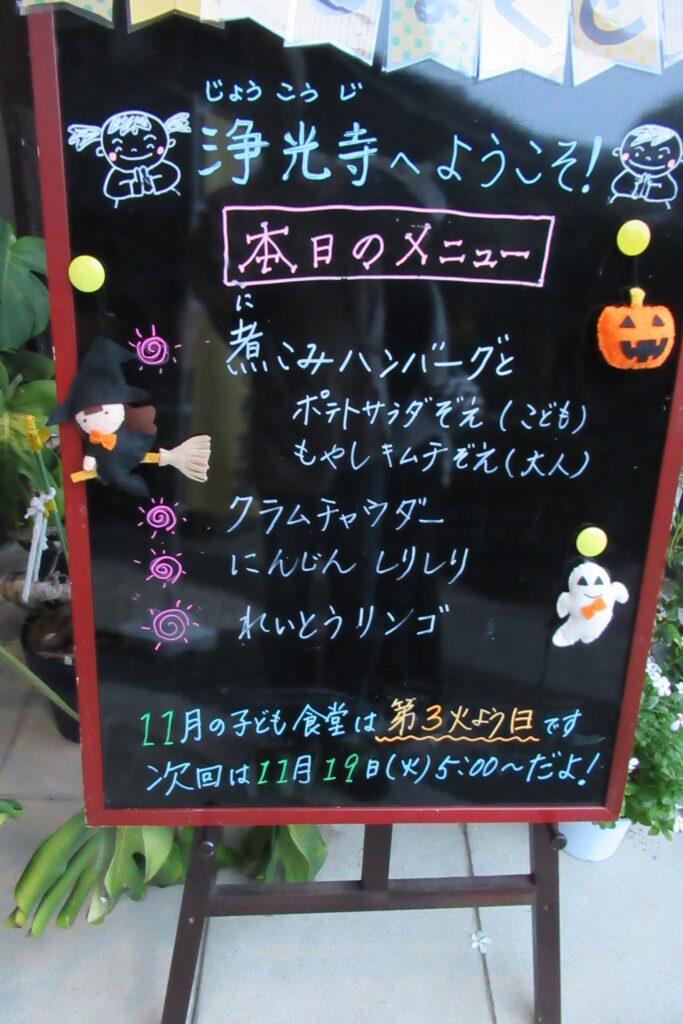 じょうこうじ
浄光寺へようこそ!
本日のメニュー
に
煮こみハンバーグと
ポテトサラダぞえ(こども)
もやしキムチぞえ(大人)
クラムチャウダー
にんじんしりしり
れいとうリンゴ
11月の子ども食堂は第3火よう日です
次回は11月19日(火)5:00〜だよ!